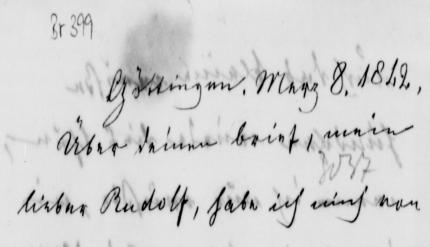 Br 399
Göttingen. Merz 8. 1842.
Über deinen brief, mein
3037
lieber Rudolf, habe ich mich von